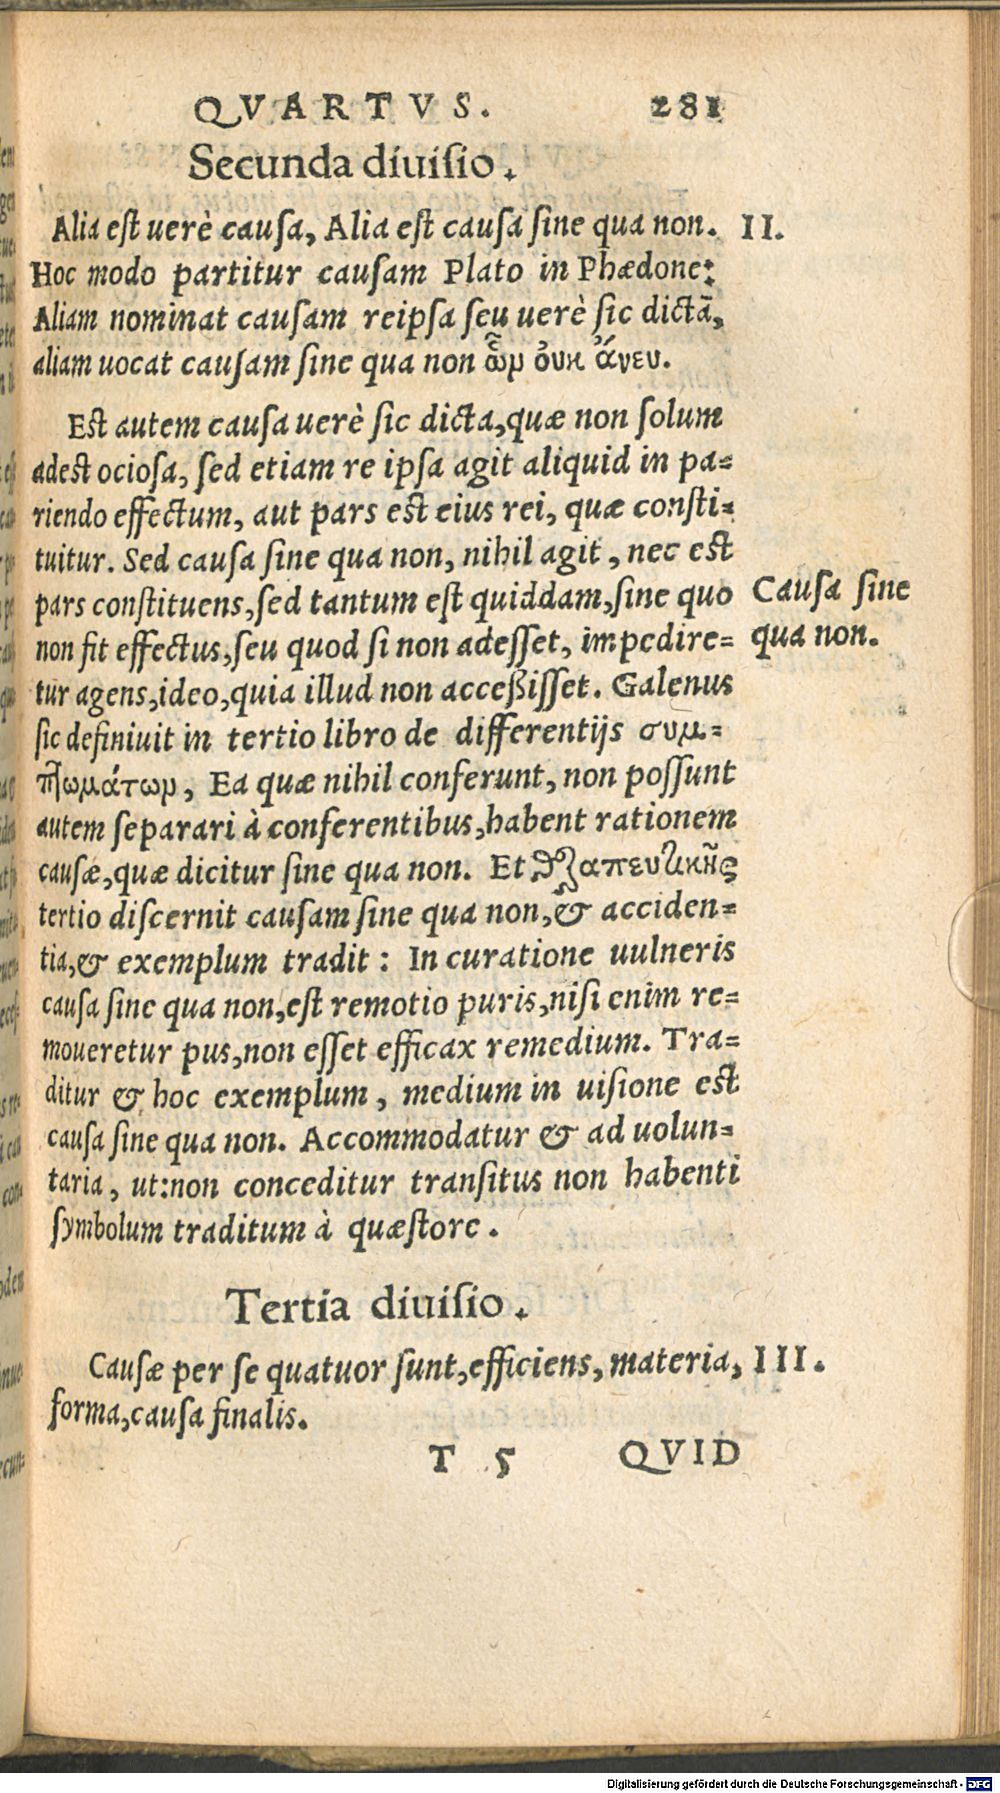 QVARTVS. 281
Secunda diuisio.
Alia est uerè causa, Alia est causa sine qua non. II.
Hoc modo partitur causam Plato in Phædone:
Aliam nominat causam reipsa seu uerè sic dictã,
aliam uocat causam sine qua non ὧν ὀυκ ἄνευ.
Est autem causa uerè sic dicta, quæ non solum
adest ociosa, sed etiam re ipsa agit aliquid in pa=
riendo effectum, aut pars est eius rei, quæ consti=
tuitur. Sed causa sine qua non, nihil agit, nec est
pars constituens, sed tantum est quiddam, sine quo
Causa sine
non fit effectus, seu quod si non adesset, impedire=
qua non.
tur agens, ideo, quia illud non acceßisset. Galenus
sic definiuit in tertio libro de differentijs συμ=
πτωμάτων, Ea quæ nihil conferunt, non possunt
autem separari à conferentibus, habent rationem
causæ, quæ dicitur sine qua non. Et θεραπευτικῆς
tertio discernit causam sine qua non, & acciden=
tia, & exemplum tradit: In curatione uulneris
causa sine qua non, est remotio puris, nisi enim re=
moueretur pus, non esset efficax remedium. Tra=
ditur & hoc exemplum, medium in uisione est
causa sine qua non. Accommodatur & ad uolun=
taria, ut: non conceditur transitus non habenti
symbolum traditum à quæstore.
Tertia diuisio.
Causæ per se quatuor sunt, efficiens, materia, III.
forma, causa finalis.
T 5 QVID
Digitalisierung gefördert durch die Deutsche Forschungsgemeinschaft - DFG